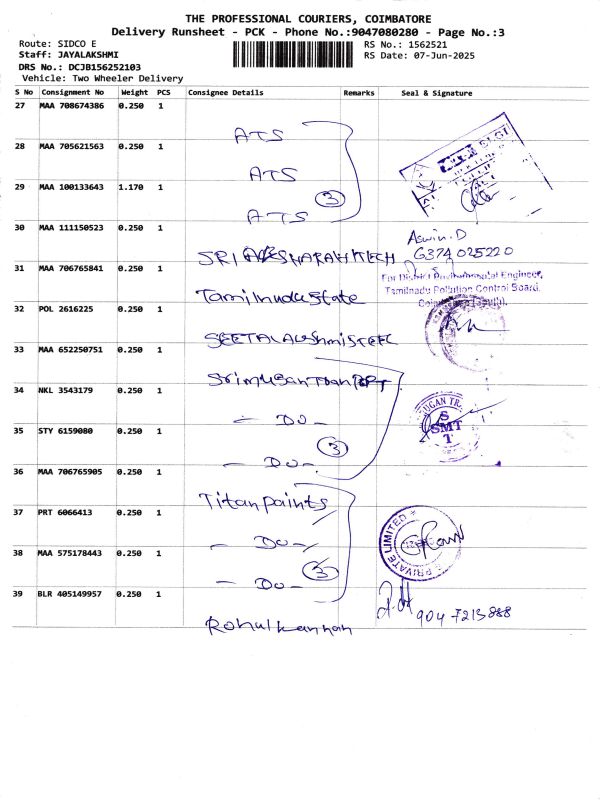 THE PROFESSIONAL COURIERS, COIMBATORE
Delivery Runsheet - PCK - Phone No.:9047080280 - Page No.:3
Route: SIDCO E
RS No.: 1562521
Staff: JAYALAKSHMI
RS Date: 07-Jun-2025
DRS No.: DCJB156252103
Vehicle: Two Wheeler Delivery
S No Consignment No Weight PCS Consignee Details Remarks Seal & Signature
27 MAA 708674386 0.250 1
ATS
28 MAA 705621563 0.250 1
ATS
29 MAA 100133643 1.170 1
3
ATS
30 MAA 111150523 0.250 1
Aswin.D
G37A 025220
31 MAA 706765841 0.250 1
For District Environmental Engineer,
Tamilnadu Pollution Control Board,
Coimbatore (South).
Tamilnadu State
32 POL 2616225 0.250 1
SEETALAKShmi STEEL
33 MAA 652250751 0.250 1
34 NKL 3543179 0.250 1
- DO -
UGAN TR
S
SMT
T
35 STY 6159080 0.250 1
3
- DO -
36 MAA 706765905 0.250 1
Titan paints
37 PRT 6066413 0.250 1
- DO -
PRIVATE LIMITED
38 MAA 575178443 0.250 1
3
- DO -
39 BLR 405149957 0.250 1
904 7213888
Rohul kannan